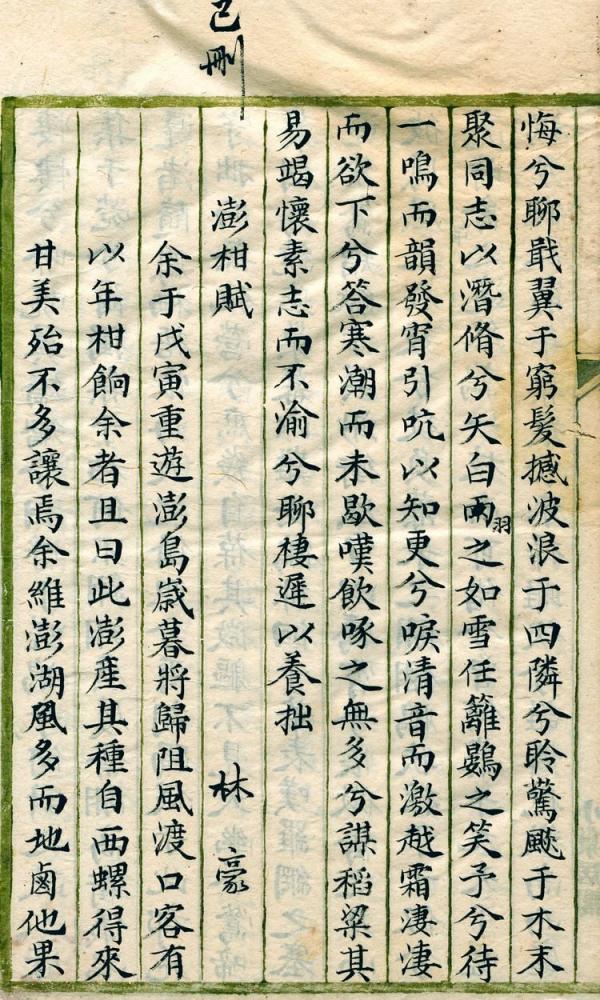 已刪
悔兮聊戢翼于窮髮撼波浪于四隣兮聆驚颷于木末
聚同志以潛脩兮矢白雨羽之如雪任籬鷃之笑予兮待
一鳴而韻發宵引吭以知更兮唳清音而激越霜淒淒
而欲下兮答寒潮而未歇嘆飲啄之無多兮謀稻粱其
易竭懷素志而不渝兮聊棲遲以養拙
澎柑賦 林豪
余于戊寅重遊澎島歲暮將歸阻風渡口客有
以年柑餉余者且曰此澎産其種自西螺得來
甘美殆不多讓焉余維澎湖風多而地鹵他果